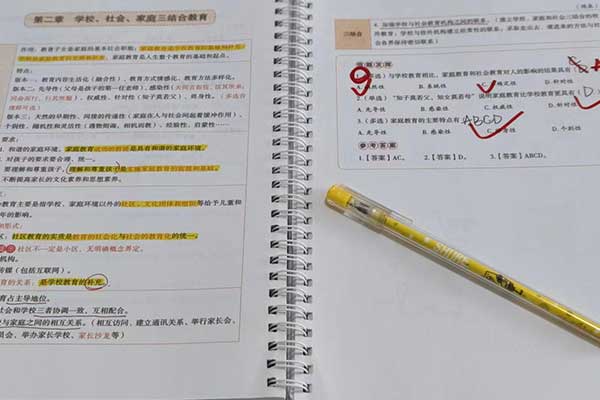 第二章 学校、社会、家庭三结合教育
作用：教育子女是家庭的基本社会职能；家庭教育是学校教育的基础和补充；
家庭教育是人生整个教育的基础和起点。
特点：
版本一，教育内容生活化（融合性）、教育方式情感化、教育方法多样化。
版本二，先导性（父母是孩子的第一任老师）、感染性
权威性、针对性（知子莫若父）、终身性。（多选合
理即可选）
版本三，天然的早期性、间接的传递性（家庭在人与社会间起着缓冲作用）、
个别性、随机性和灵活性（遇物则诲、相机而教）、经验性、启蒙性……
要求：
和谐的家庭环境。家庭教育成功的前提是具有和谐的家庭环境。
对孩子的要求要合理、统一。
要理解和尊重孩子。理解和尊重孩子是实施家庭教育的前提和基础。
不断提高家长的文化素养和思想素养。
教育主要是指学校、家庭环境以外的社区、文化团体和组织等给予儿童和
年的影响。
和形式：
社区教育的实质是教育的社会化与社会的教育化的统一。
社区不一定是小区，无明确概念界定。
机构。
传媒（包括互联网）。
教育的关系：是学校教育的补充。
教育占主导地位。
社会和学校三者协调一致、互相配合。
校与家庭之间的相互关系。（相互访问、建立通讯关系、举行家长会、
员会、举办家长学校、家长沙龙等）
三结合
4. 加强学校与社会教育机构之间的联系。
会各界保持密切联系）
9
1.(多选) 与学校教育相比，家庭教育和社会教育对人的影响的结果具有
B. 系统性
D. 针对性
2.(单选) “知子莫若父，知女莫若母”说明家庭教育比学校教育更具有(D)
A. 先导性 B. 感染性 C. 权威性 D. 针对性
3.(多选) 家庭教育的主要特点有 ABCD
A. 先导性 B. 感染性 C. 终身性 D. 个别性
参考答案
1.【答案】AC。 2.【答案】D。 3.【答案】ABCD。